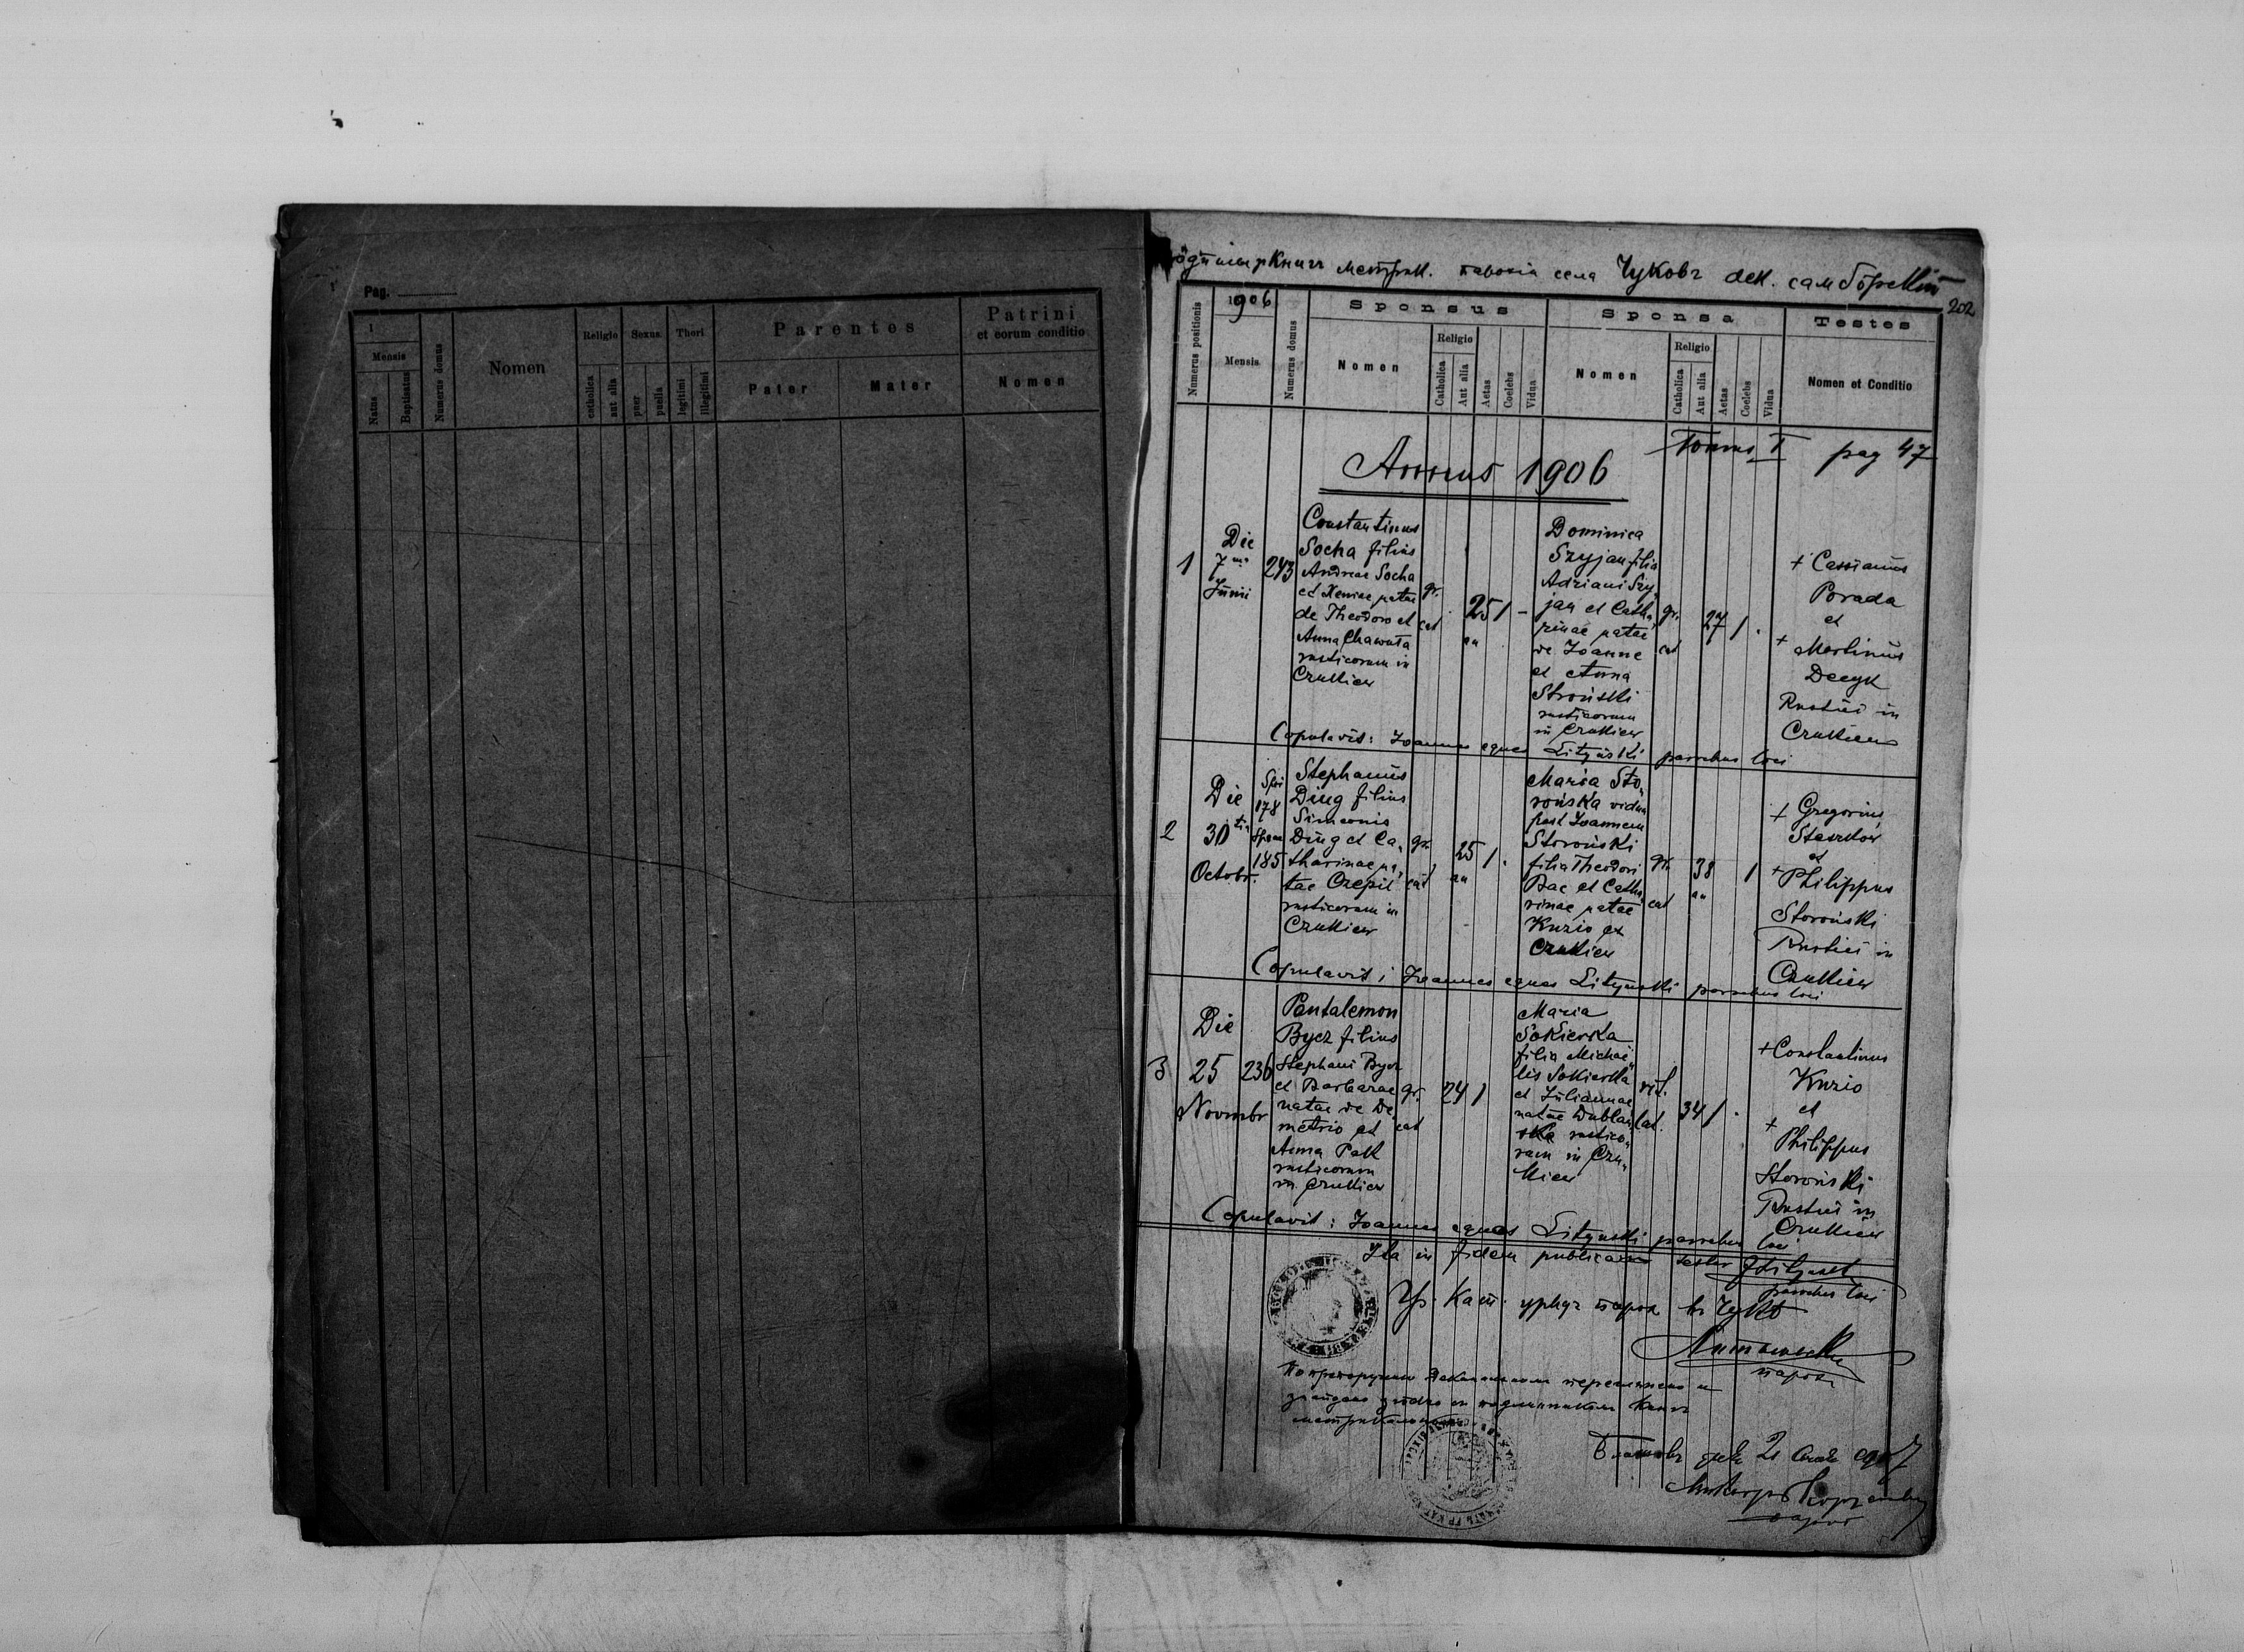 Pag.
1
Mensis
Natus
Baptisatus
Numerus domus
Nomen
Religio
catholica
aut alia
Sexus
puer
puella
Thori
legitimi
illegitimi
Parentes
Pater
Mater
Patrini
et eorum conditio
Nomen
метрик. парохіи села Чуковъ дек. самборскій
202
Numerus positionis
1906
Mensis
Numerus domus
Sponsus
Nomen
Religio
Catholica
Aut alia
Aetas
Coelebs
Vidua
Sponsa
Nomen
Religio
Catholica
Aut alia
Aetas
Coelebs
Vidua
Testes
Nomen et Conditio
Tomus I pag 47
Annus 1906
1
Die
7ma
Junii
243
Constantinus
Socha filius
Andreae Socha
et Xeniae natae
de Theodoro et
Anna Chawuta
rusticorum in
Czukiew
gr.
cat
25
an
/
-
Dominica
Szyjan filia
Adriani Szy„
jan et Catha„
rinae natae
de Joanne
et Anna
Stroński
rusticorum
in Czukiew
gr.
cat
27
/
.
+ Cassianus
Porada
et
+ Martinus
Decyk
Rustici in
Czukiew
Copulavit: Joannes eques Lityński parochus loci
2
Die
30tia
Octobr.
Spsi
178
Spsae
185
Stephanus
Ding filius
Simeonis
Ding et Ca„
tharinae na„
tae Czepil
rusticorum in
Czukiew
gr.
cat
25
an
/
.
Maria Sto„
rońska vidua
post Joannem
Storoński
filia Theodori
Bac et Catha„
rinae natae
Kuzio ex
Czukiew
gr.
cat
38
an
/
+ Gregorius
et
+ Philippus
Storoński
Rustici in
Czukiew
Copulavit: Joannes eques Lityński parochus loci
3
Die
25
Novembr
236
Pantalemon
Bycz filius
Stephani Bycz
et Barbarae
natae de De„
metrio et
Anna Pak
rusticorum
in Czukiew
gr.
cat
24
/
Maria
Sokierka
filia Michaë„
lis Sokierka
et Juliannae
natae Dublań„
ska rustico„
rum in Czu„
kiew
rit.
lat.
34
/
.
+ Constantinus
Kuzio
et
+
Philippus
Storoński
Rustici in
Czukiew
Copulavit: Joannes eques Lityński parochus loci
Ita in fidem publicam testor JLityński
parochus loci
Гр. Кат. урядъ парох
Литинскій
парох